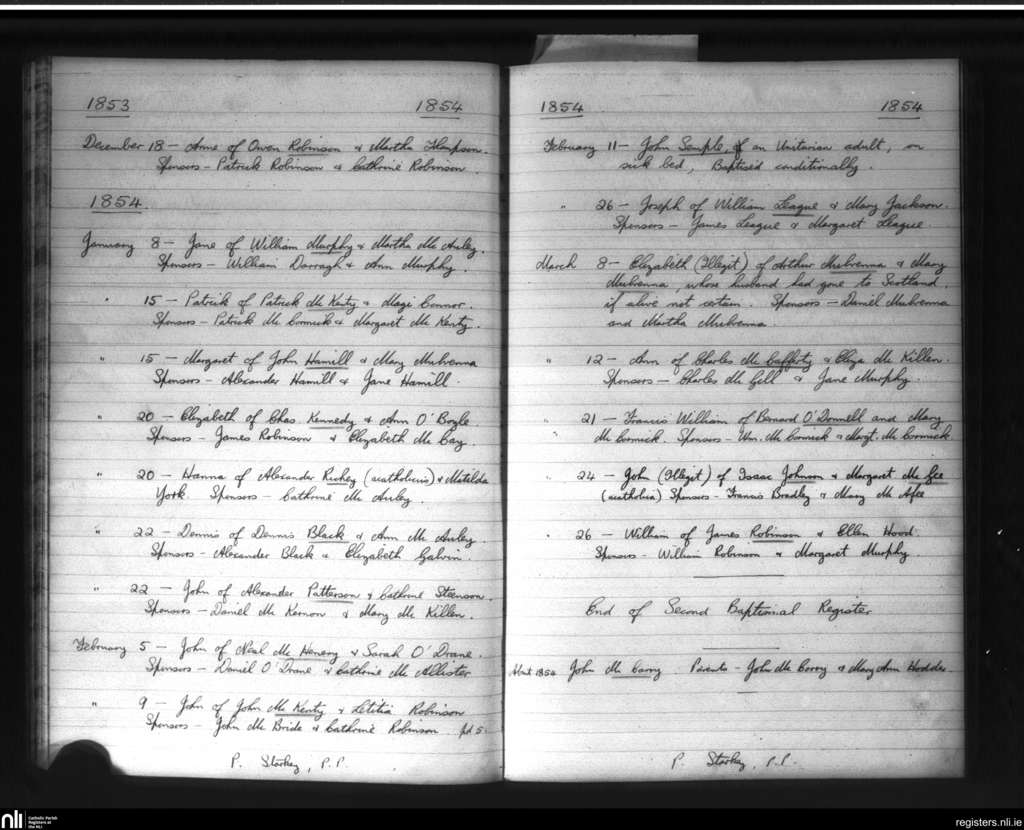 1853 1854
December 18 - Anne of Owen Robinson & Martha Thompson.
Sponsors - Patrick Robinson & Catherine Robinson.
1854.
January 8 - Jane of William Murphy & Martha Mc Auley.
Sponsors - William Darragh & Ann Murphy.
" 15 - Patrick of Patrick Mc Kenty & Magi Connor.
Sponsors - Patrick Mc Cormick & Margaret Mc Kenty.
" 15 - Margaret of John Hamill & Mary Mulvenna
Sponsors - Alexander Hamill & Jane Hamill.
" 20 - Elizabeth of Chas. Kennedy & Ann O'Boyle
Sponsors - James Robinson & Elizabeth Mc Cay.
" 20 - Hanna of Alexander Richey (acatholicus) & Matilda
York. Sponsors - Catherine Mc Auley.
" 22 - Dennis of Dennis Black & Ann Mc Auley
Sponsors - Alexander Black & Elizabeth Galvin.
" 22 - John of Alexander Patterson & Catherine Steenson.
Sponsors - Daniel Mc Kernon & Mary Mc Killen.
February 5 - John of Neal Mc Henery & Sarah O'Drane.
Sponsors - Daniel O'Drane & Catherine Mc Allister
" 9 - John of John Mc Kenty & Letitia Robinson
Sponsors - John Mc Bride & Catherine Robinson. pd 5.
P. Starkey, P.P.
1854 1854
February 11 - John Semple, of an Unitarian adult, on
sick bed, Baptised conditionally.
" 26 - Joseph of William League & Mary Jackson.
Sponsors - James League & Margaret League.
March 8 - Elizabeth (Illegit) of Arthur Mulvenna & Mary
Mulvenna, whose husband had gone to Scotland,
if alive not certain. Sponsors - Daniel Mulvenna
and Martha Mulvenna.
" 12 - Ann of Charles Mc Cafferty & Eliza Mc Killen.
Sponsors - Charles Mc Gell & Jane Murphy.
" 21 - Francis William of Bernard O'Donnell and Mary
Mc Cormick. Sponsors - Wm. Mc Cormick & Margt. Mc Cormick.
" 24 - John (Illegit) of Isaac Johnson & Margaret Mc Gee
(acatholica) Sponsors - Francis Bradley & Mary Mc Afee
" 26 - William of James Robinson & Ellen Hood.
Sponsors - William Robinson & Margaret Murphy
End of Second Baptismal Register
About 1854 John Mc Corry Parents - John Mc Corry & Mary Ann Hodder.
P. Starkey, P.P.
nli Catholic Parish
Registers at
the NLI
registers.nli.ie